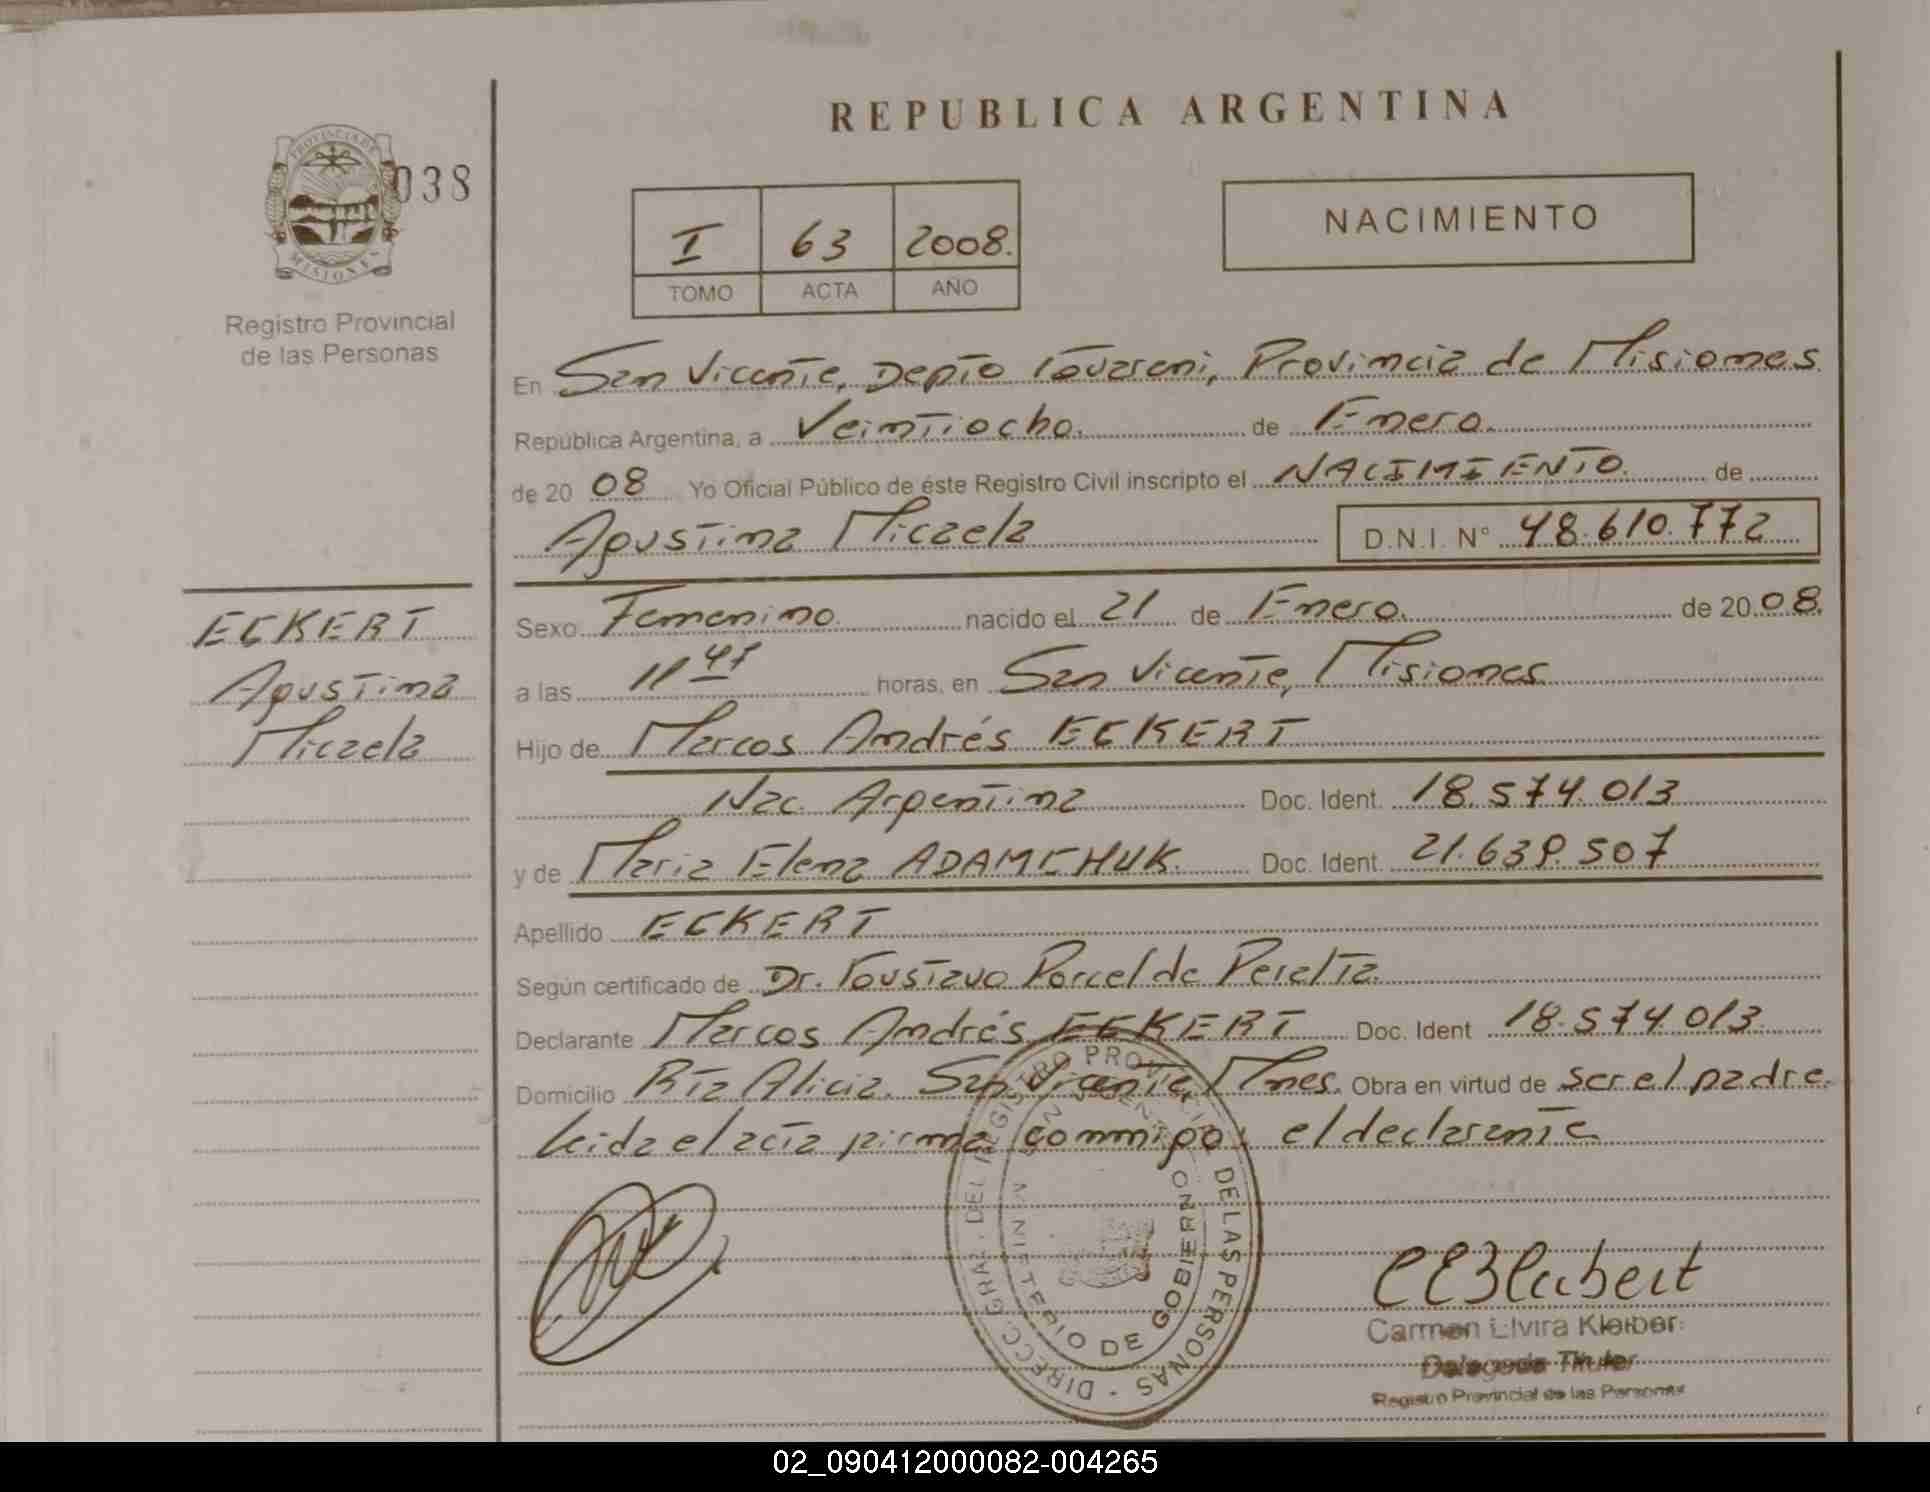 REPUBLICA ARGENTINA
PROVINCIA DE MISIONES
038
Registro Provincial
de las Personas
I 63 2008.
TOMO ACTA AÑO
NACIMIENTO
En San Vicente, Depto Guarani, Provincia de Misiones
República Argentina, a Veintiocho. de Enero.
de 20 08 Yo Oficial Público de éste Registro Civil inscripto el NACIMIENTO. de
Agustina Micaela D.N.I. N° 48.610.772
ECKERT
Agustina
Micaela
Sexo Femenino nacido el 21 de Enero. de 20 08.
a las 11 47 horas, en San Vicente, Misiones
Hijo de Marcos Andrés ECKERT
Nac. Argentina Doc. Ident. 18.574.013
y de Maria Elena ADAMCHUK. Doc. Ident. 21.639.507
Apellido ECKERT
Según certificado de Dr. Gustavo Porcel de Peralta.
Declarante Marcos Andrés ECKERT Doc. Ident 18.574.013
Domicilio Bta Alicia. San Vicente, Mnes. Obra en virtud de ser el padre
leida el acta firma conmigo, el declarante
DIRECC. GRAL. DEL REGISTRO PROVINCIAL DE LAS PERSONAS
SAN VICENTE
MINISTERIO DE GOBIERNO
Carmen Elvira Kleiber
Delegada Titular
Registro Provincial de las Personas
02_090412000082-004265